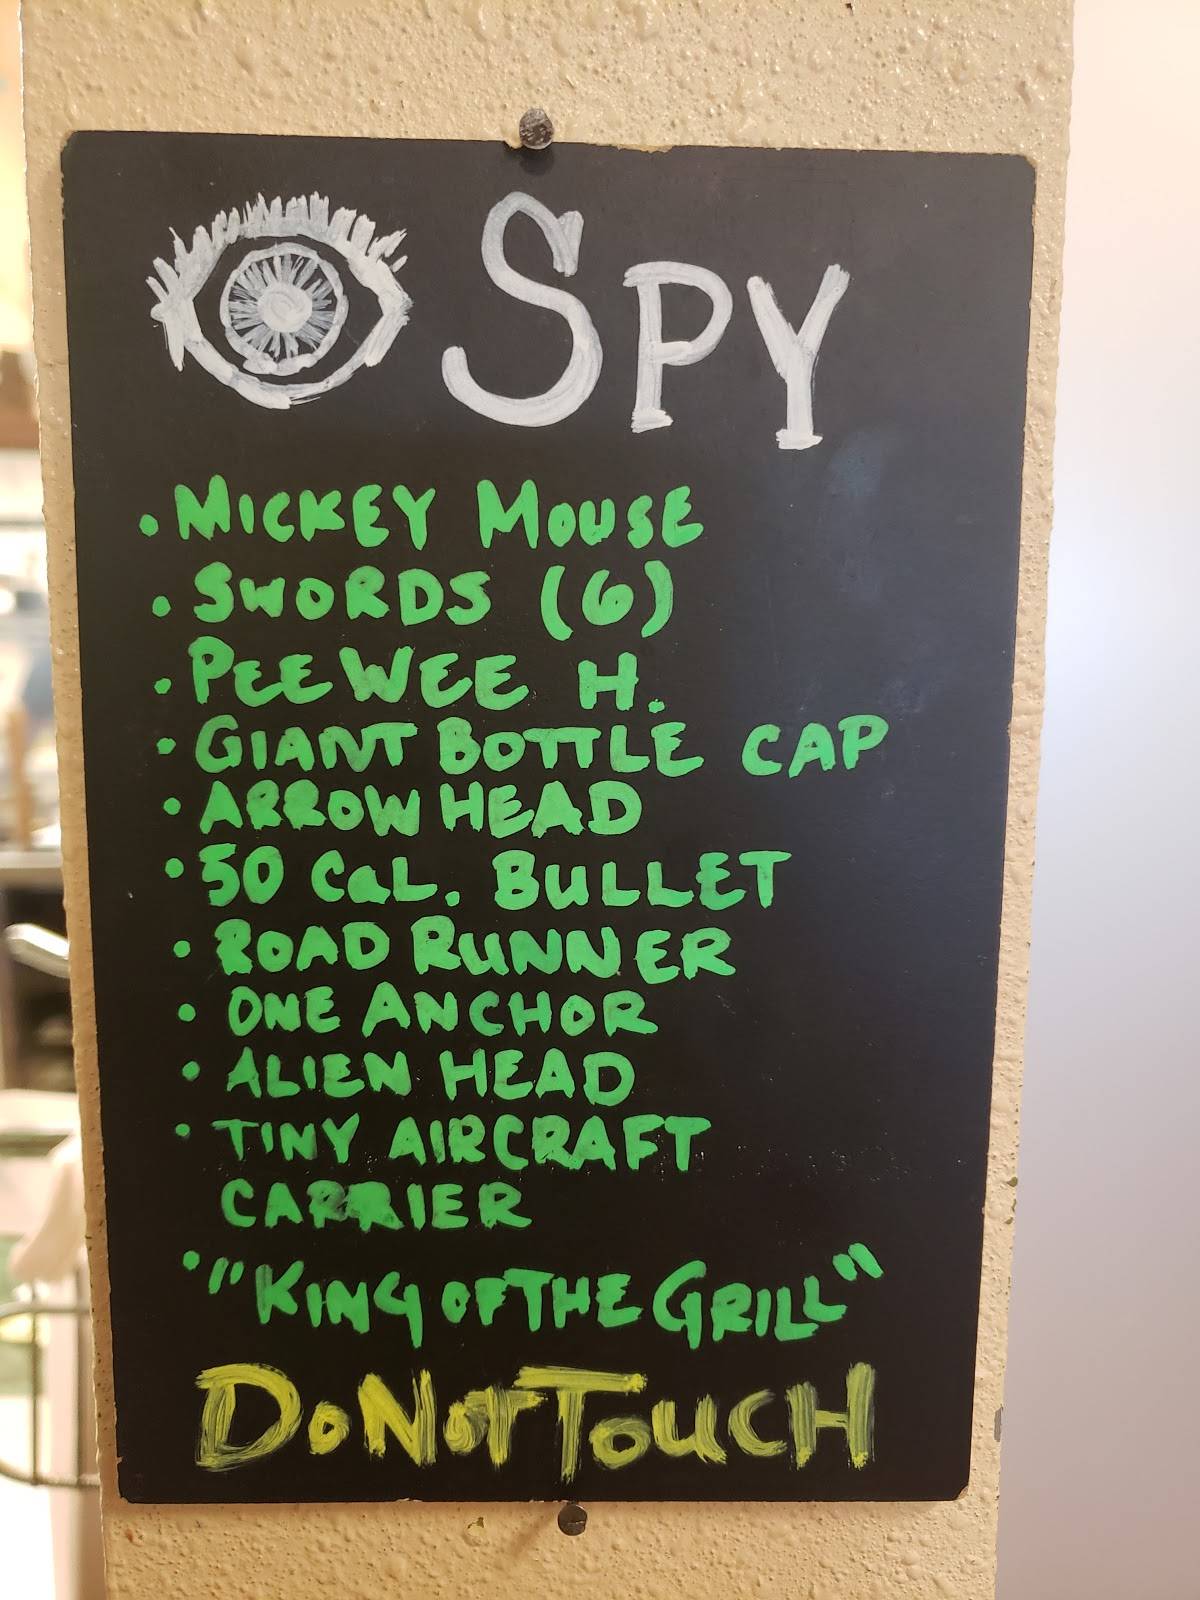 SPY
• MICKEY MOUSE
• SWORDS (6)
• PEE WEE H.
• GIANT BOTTLE CAP
• ARROW HEAD
• 50 CaL. BULLET
• ROAD RUNNER
• ONE ANCHOR
• ALIEN HEAD
• TINY AIRCRAFT
CARRIER
• "KING OF THE GRILL"
DO NOT TOUCH